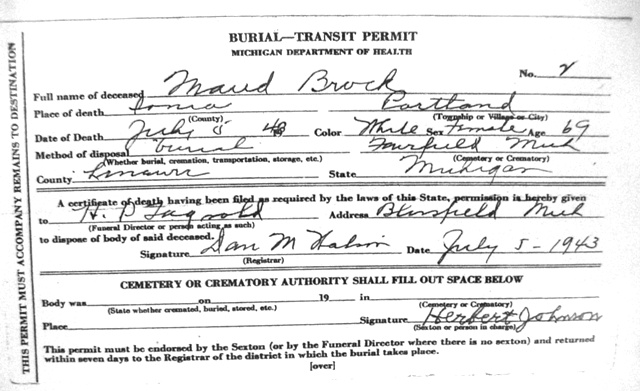 BURIAL—TRANSIT PERMIT
MICHIGAN DEPARTMENT OF HEALTH
No. 2
Full name of deceased Maud Brock
Place of death Ionia Portland
(County) (Township or Village or City)
Date of Death July 5 43 Color White Sex Female Age 69
Method of disposal Burial Fairfield Mich
(Whether burial, cremation, transportation, storage, etc.) (Cemetery or Crematory)
County Lenawee State Michigan
A certificate of death having been filed as required by the laws of this State, permission is hereby given
to H. P. Address Blissfield Mich
(Funeral Director or person acting as such)
to dispose of body of said deceased.
Signature Dan M Date July 5 - 1943
(Registrar)
CEMETERY OR CREMATORY AUTHORITY SHALL FILL OUT SPACE BELOW
Body was on 19 in
(State whether cremated, buried, stored, etc.) (Cemetery or Crematory)
Place Signature Herbert Johnson
(Sexton or person in charge)
This permit must be endorsed by the Sexton (or by the Funeral Director where there is no sexton) and returned
within seven days to the Registrar of the district in which the burial takes place.
[over]
THIS PERMIT MUST ACCOMPANY REMAINS TO DESTINATION